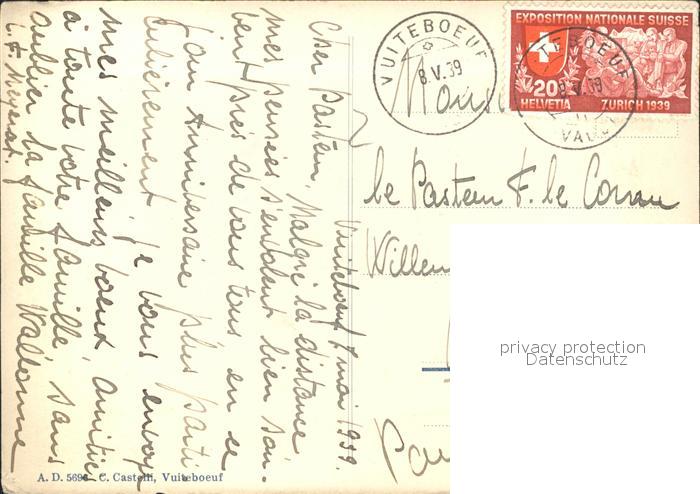 Vuiteboeuf 8 mai 1939.
Cher Pasteur, Malgré la distance
mes pensées s'envolent bien sou-
vent près de vous tous en ce
jour Anniversaire plus parti
culièrement je vous envoye
mes meilleurs voeux amitiés
à toute votre famille, sans
oublier la famille Wallonne
A. D. 569 C. Castelli, Vuiteboeuf
VUITEBOEUF
8.V.39
EXPOSITION NATIONALE SUISSE
20
HELVETIA ZURICH 1939
VUITEBOEUF
8.V.39
Mons
le Pasteur F. le Cornu
Willem
privacy protection
Datenschutz